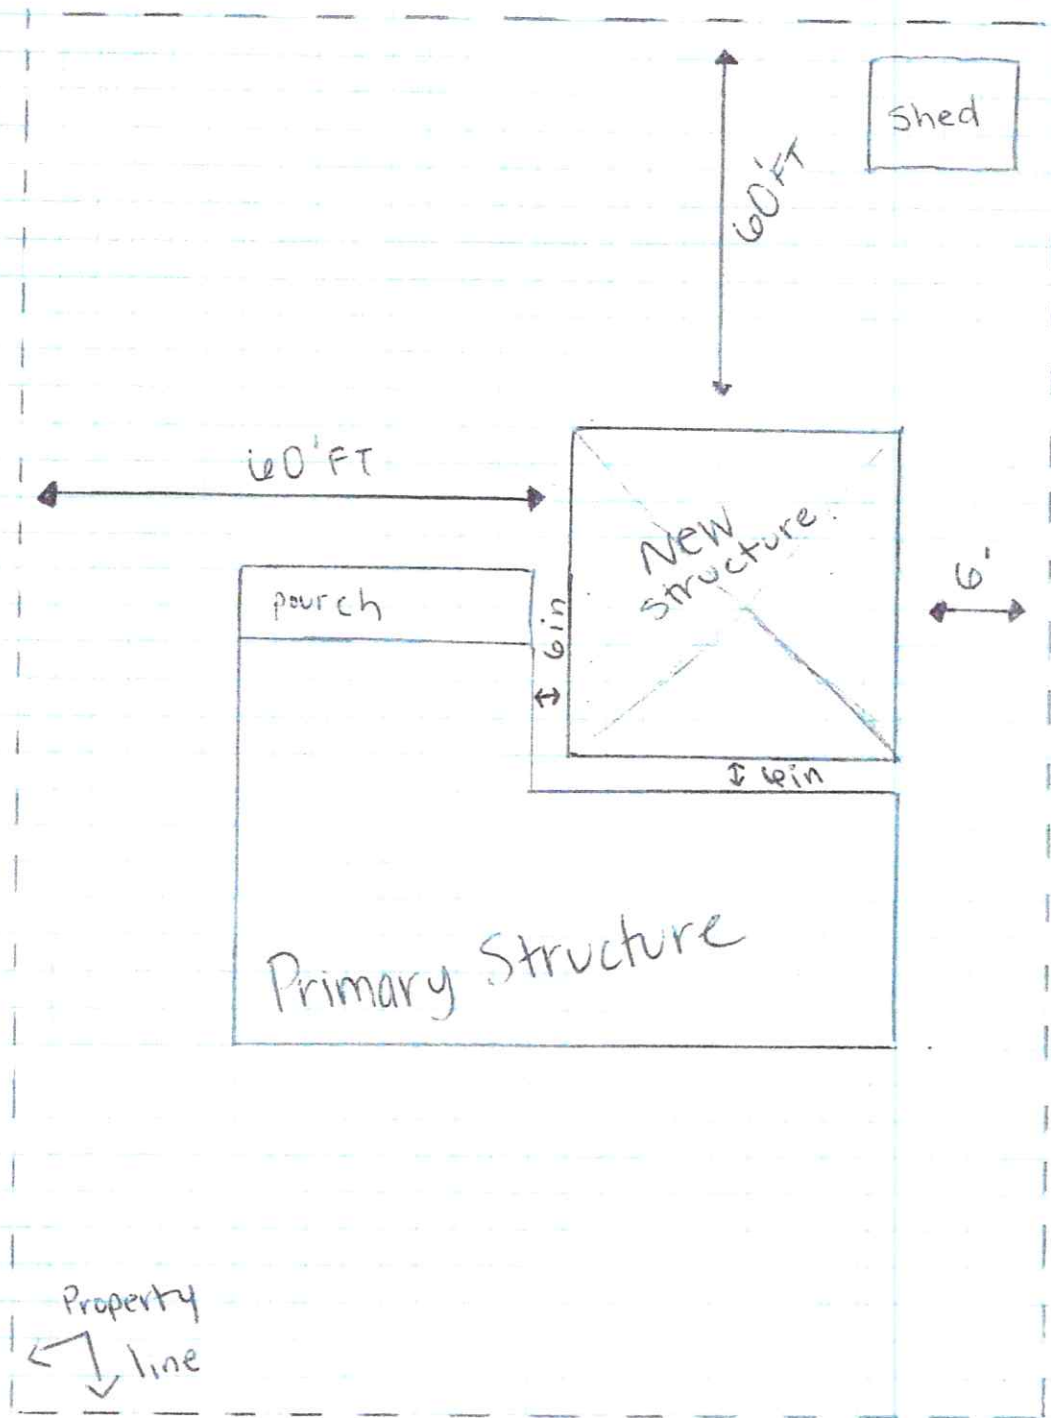 Shed
60'FT
60'FT
New
structure.
6'
pourch
6in
6in
Primary Structure
Property
line